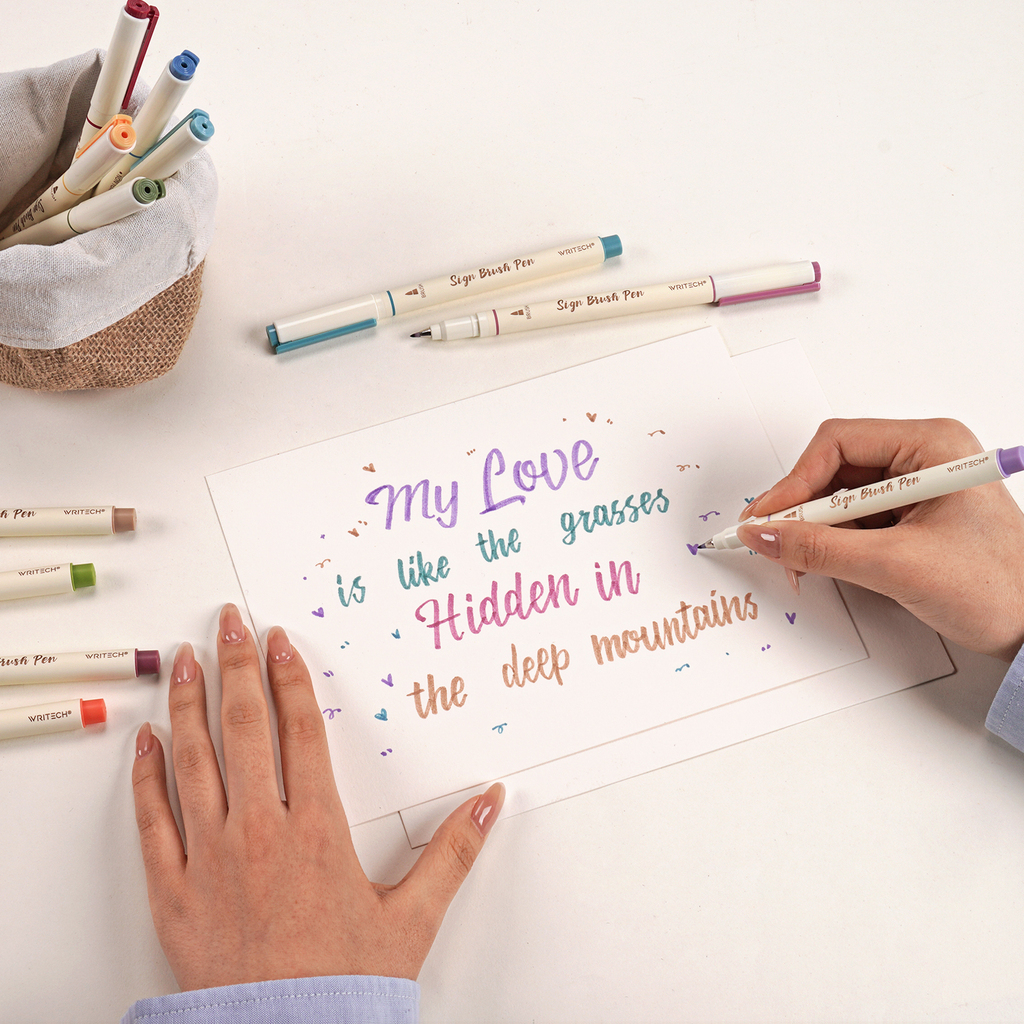 Sign Brush Pen WRITECH®
BRUSH Sign Brush Pen WRITECH®
My Love
is like the grasses
Hidden in
the deep mountains
Sign Brush Pen WRITECH®
Pen WRITECH®
WRITECH®
Brush Pen WRITECH®
WRITECH®